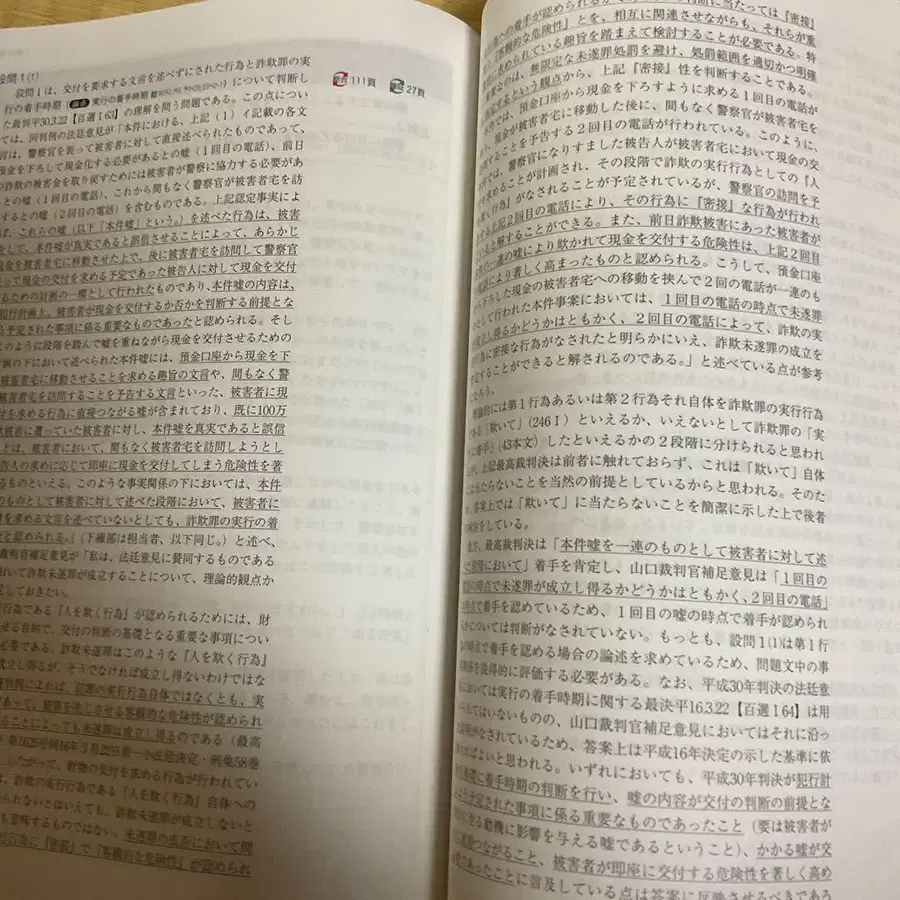 設問1(1)
設問1は、交付を要求する文言を述べずにされた行為と詐欺罪の実
行の着手時期(論点 実行の着手時期)について判断し
た最判平30.3.22【百選Ⅰ63】の理解を問う問題である。この点につい
ては、同判例の法廷意見が「本件における、上記(1)イ記載の各文
言は、警察官を装って被害者に対して直接述べられたものであって、
預金を下ろして現金化する必要があるとの嘘(1回目の電話)、前日
の詐欺の被害金を取り戻すためには被害者が警察に協力する必要があ
との嘘(1回目の電話)、これから間もなく警察官が被害者宅を訪
するとの嘘(2回目の電話)を含むものである。上記認定事実によ
ば、これらの嘘(以下「本件嘘」という。)を述べた行為は、被害
をして、本件嘘が真実であると誤信させることによって、あらかじ
現金を被害者宅に移動させた上で、後に被害者宅を訪問して警察官
って現金の交付を求める予定であった被告人に対して現金を交付
るための計画の一環として行われたものであり、本件嘘の内容は、
犯行計画上、被害者が現金を交付するか否かを判断する前提とな
う予定された事項に係る重要なものであったと認められる。そし
のように段階を踏んで嘘を重ねながら現金を交付させるための
画の下において述べられた本件嘘には、預金口座から現金を下
被害者宅に移動させることを求める趣旨の文言や、間もなく警
害者宅を訪問することを予告する文言といった、被害者に現
付を求める行為に直接つながる嘘が含まれており、既に100万
欺被害に遭っていた被害者に対し、本件嘘を真実であると誤信
とは、被害者において、間もなく被害者宅を訪問しようとし
告人の求めに応じて即座に現金を交付してしまう危険性を著
るものといえる。このような事実関係の下においては、本件
のものとして被害者に対して述べた段階において、被害者に
を求める文言を述べていないとしても、詐欺罪の実行の着
と認められる。」(下線部は担当者、以下同じ。)と述べ、
裁判官補足意見が「私は、法廷意見に賛同するものである
おいて詐欺未遂罪が成立することについて、理論的観点か
しておきたい。
行為である『人を欺く行為』が認められるためには、財
せる目的で、交付の判断の基礎となる重要な事項につい
必要である。詐欺未遂罪はこのような『人を欺く行為』
成立し得るが、そうでなければ成立し得ないわけではな
判例によれば、犯罪の実行行為自体ではなくとも、実
あって、被害を生じさせる客観的な危険性が認められ
ることによっても未遂罪は成立し得るのである(最高
第1625号同16年3月22日第一小法廷決定・刑集58巻
。したがって、財物の交付を求める行為が行われてい
は、詐欺の実行行為である『人を欺く行為』自体への
られないとはいえても、詐欺未遂罪が成立しないと
も意味するものではない。未遂罪の成否において問
為に『密接』で『客観的な危険性』が認められ
111頁
27頁
への着手が認められるか
断に当たっては『密接』
『客観的な危険性』とを、相互に関連させながらも、それらが重
求められている趣旨を踏まえて検討することが必要である。特
なのは、無限定な未遂罪処罰を避け、処罰範囲を適切かつ明確
するという観点から、上記『密接』性を判断することである。
件では、預金口座から現金を下ろすように求める1回目の電話が
り、現金が被害者宅に移動した後に、間もなく警察官が被害者宅を
することを予告する2回目の電話が行われている。このように、
では、警察官になりすました被告人が被害者宅において現金の交
求めることが計画され、その段階で詐欺の実行行為としての『人
く行為』がなされることが予定されているが、警察官の訪問を予
る上記2回目の電話により、その行為に『密接』な行為が行われ
ると解することができる。また、前日詐欺被害にあった被害者が
の一連の嘘により欺かれて現金を交付する危険性は、上記2回目
電話により著しく高まったものと認められる。こうして、預金口座
下ろした現金の被害者宅への移動を挟んで2回の電話が一連のも
として行われた本件事案においては、1回目の電話の時点で未遂罪
成立し得るかどうかはともかく、2回目の電話によって、詐欺の実
為に密接な行為がなされたと明らかにいえ、詐欺未遂罪の成立を
定することができると解されるのである。」と述べている点が参考
なろう。
理論的には第1行為あるいは第2行為それ自体を詐欺罪の実行行為
る「欺いて」(246Ⅰ)といえるか、いえないとして詐欺罪の「実
に着手」(43本文)したといえるかの2段階に分けられると思われ
が、上記最高裁判決は前者に触れておらず、これは「欺いて」自体
当たらないことを当然の前提としているからと思われる。そのた
、答案上では「欺いて」に当たらないことを簡潔に示した上で後者
検討をしている。
方、最高裁判決は「本件嘘を一連のものとして被害者に対して述
段階において」着手を肯定し、山口裁判官補足意見は「1回目の
の時点で未遂罪が成立し得るかどうかはともかく、2回目の電話」
時点で着手を認めているため、1回目の嘘の時点で着手が認められ
については判断がなされていない。もっとも、設問1(1)は第1行
の時点で着手を認める場合の論述を求めているため、問題文中の事
等を後得的に評価する必要がある。なお、平成30年判決の法廷意
においては実行の着手時期に関する最決平16.3.22【百選Ⅰ64】は用
られてはいないものの、山口裁判官補足意見においてはそれに沿っ
説明がなされているため、答案上は平成16年決定の示した基準に依
ればよいと思われる。いずれにおいても、平成30年判決が犯行計
に着手時期の判断を行い、嘘の内容が交付の判断の前提とな
う予定された事項に係る重要なものであったこと(要は被害者が
至る動機に影響を与える嘘であるということ)、かかる嘘が交
直接つながること、被害者が即座に交付する危険性を著しく高め
であったことに言及している点は答案に反映させるべきであろ